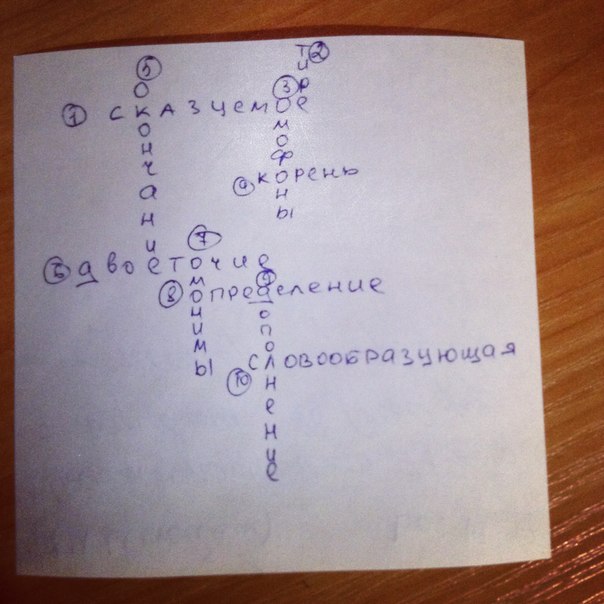 5 окончание
2 тире
3 омофоны
1 сказуемое
4 корень
7 омонимы
6 двоеточие
9 дополнение
8 определение
10 словообразующая